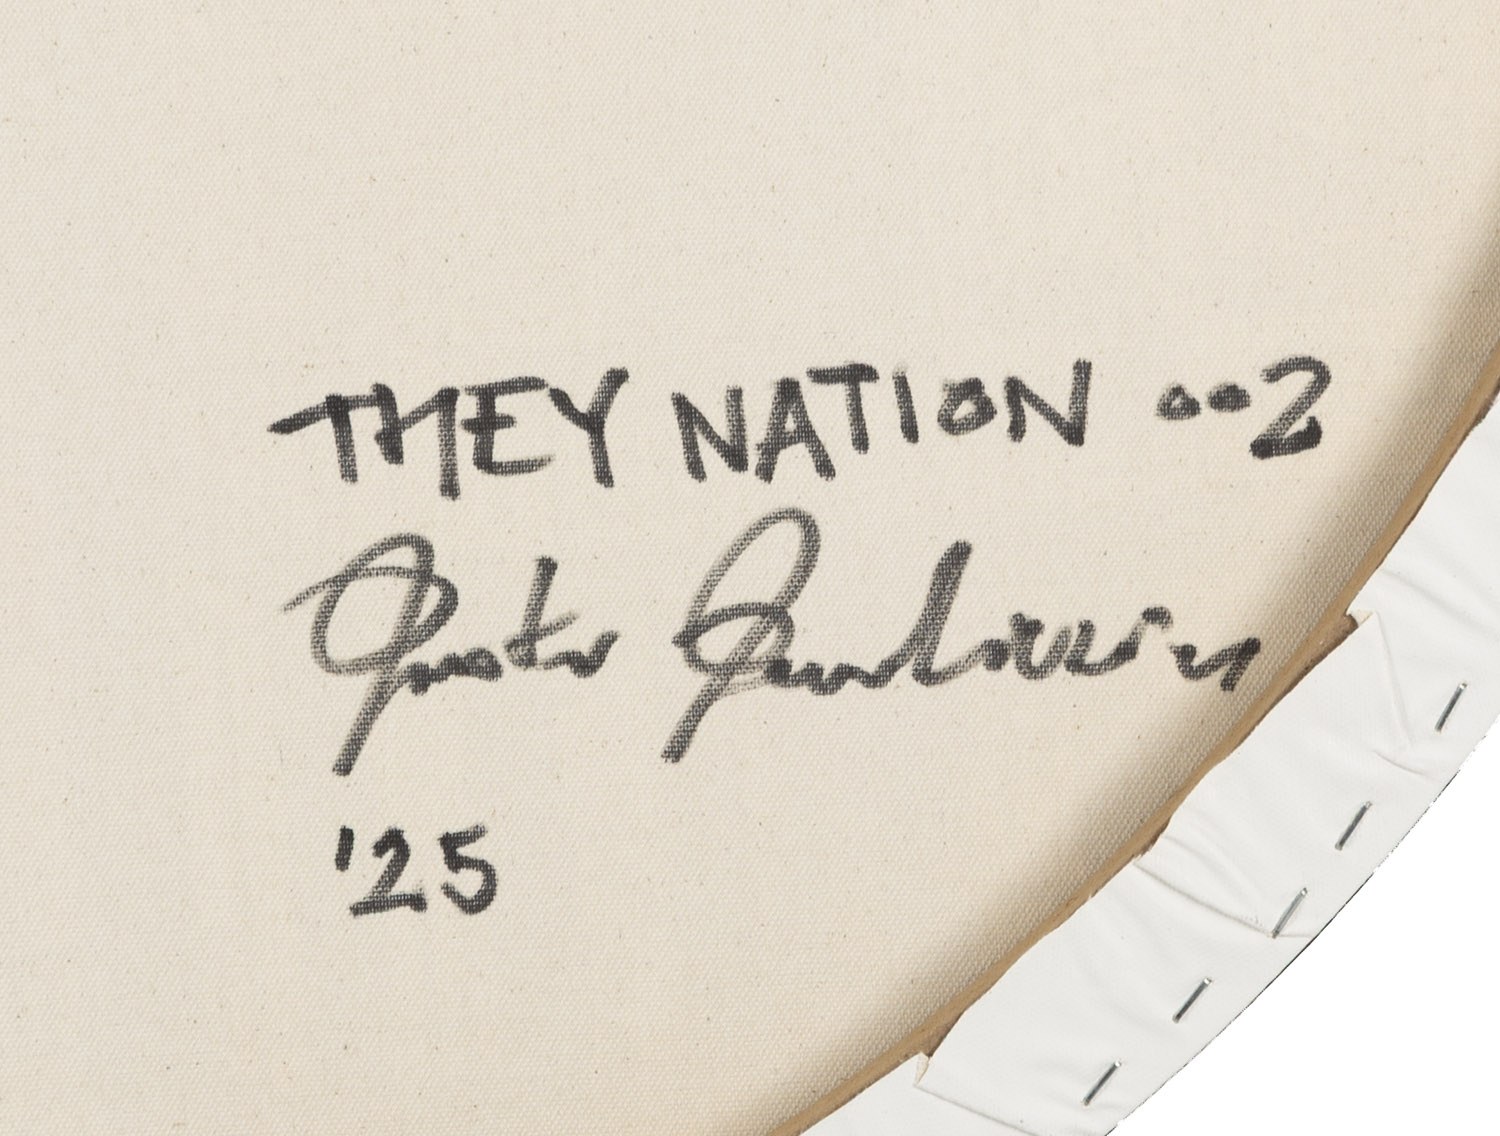 THEY NATION 002
'25